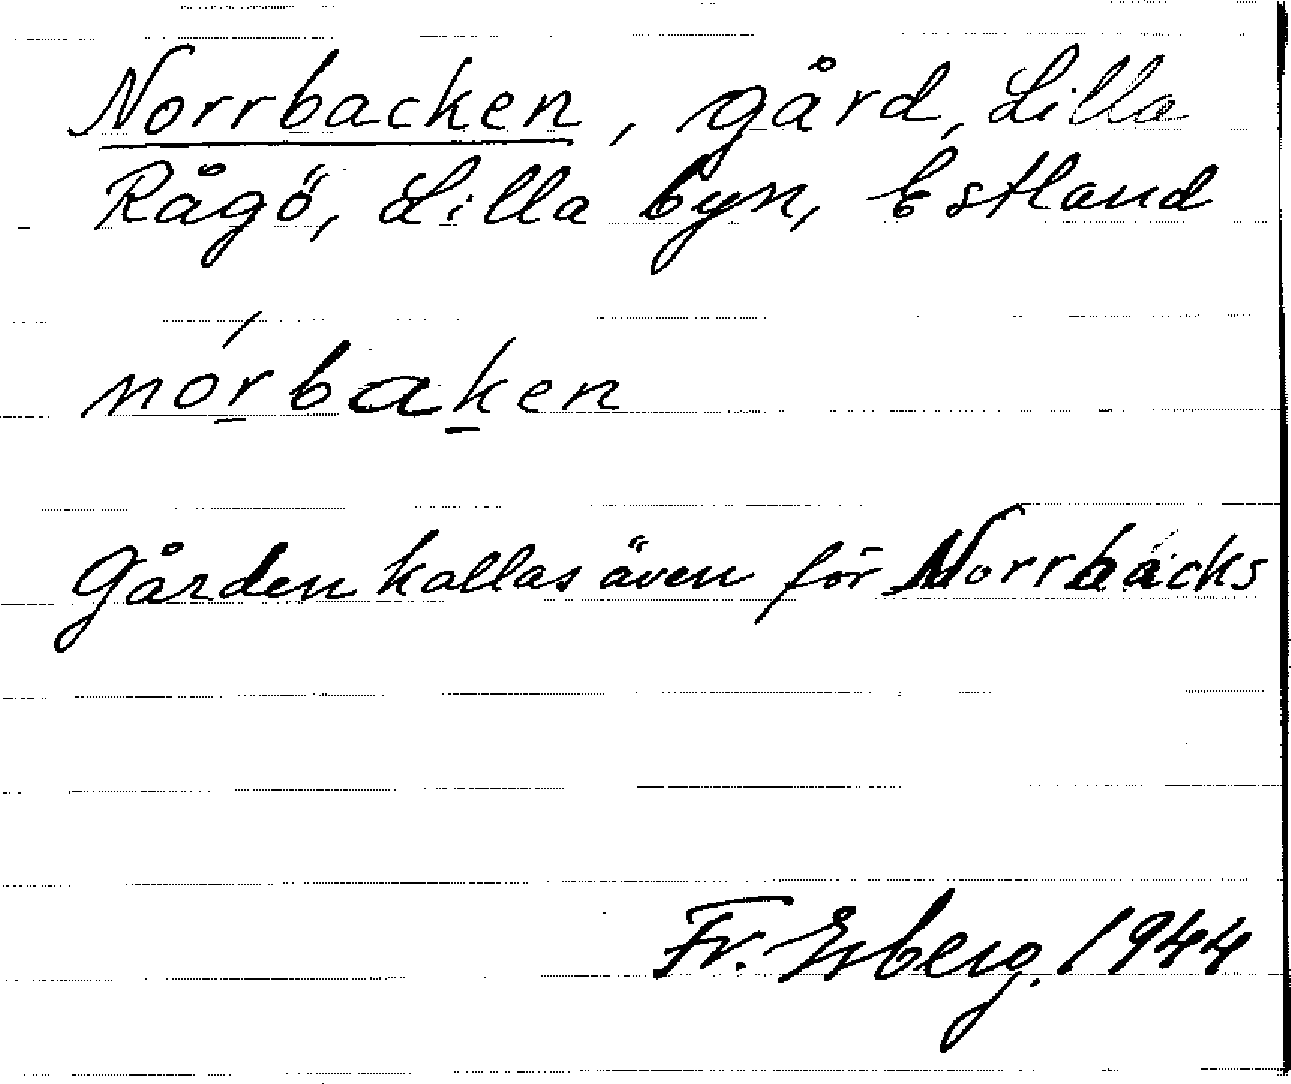 Norrbacken, gård, Lilla
Rågö, Lilla byn, Estland
nórbaken
Gården kallas även för Norrbäcks
Fr. Isberg. 1944